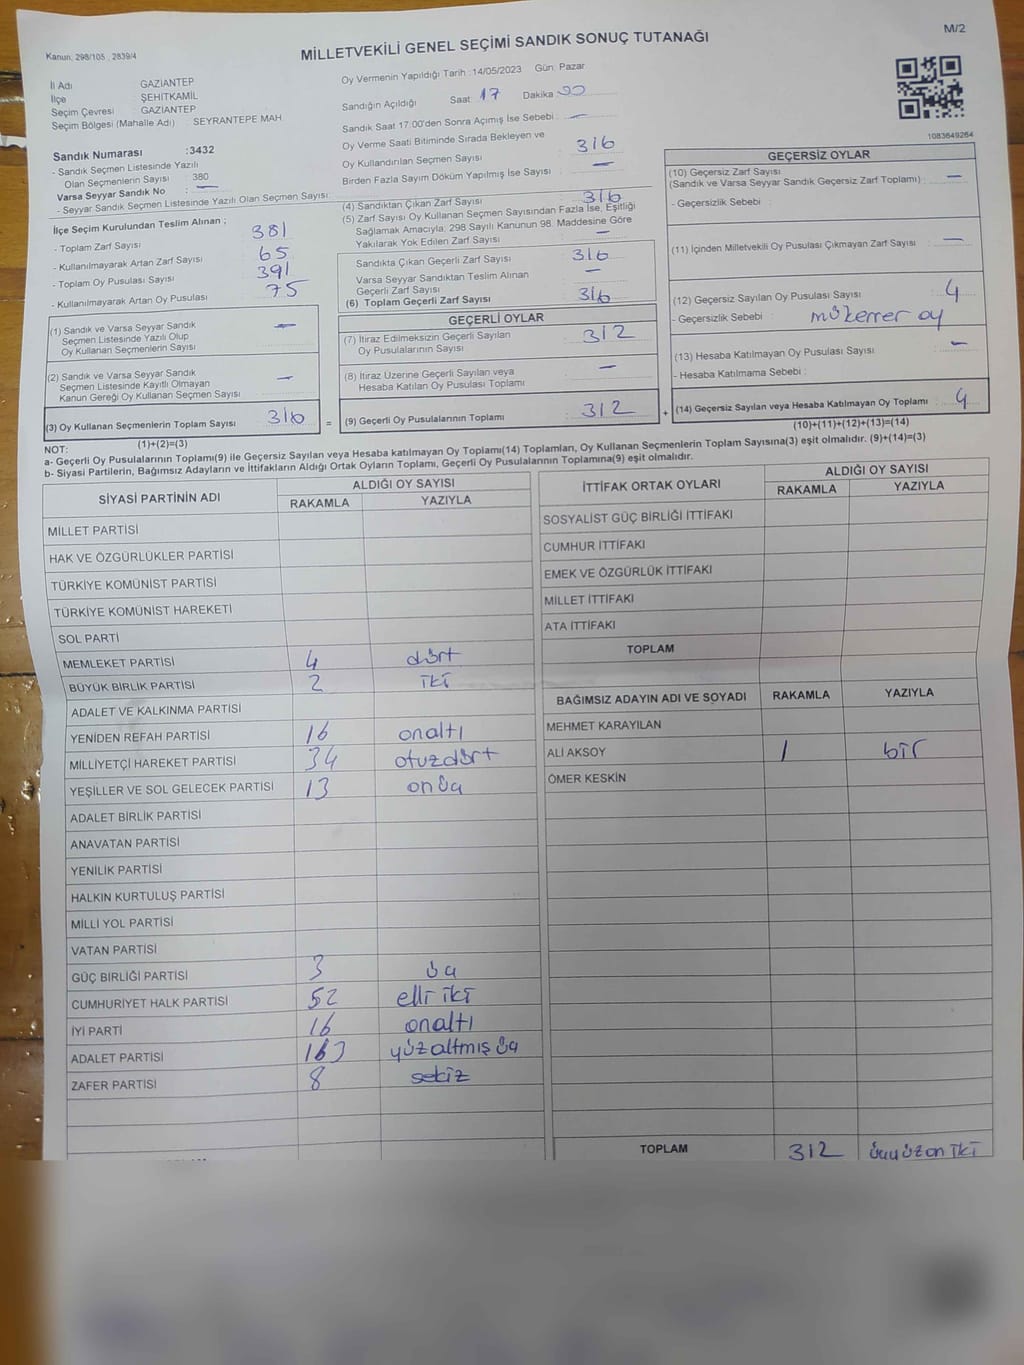 M/2
Kanun: 298/105 , 2839/4
MİLLETVEKİLİ GENEL SEÇİMİ SANDIK SONUÇ TUTANAĞI
İl Adı GAZİANTEP
İlçe ŞEHİTKAMİL
Seçim Çevresi : GAZİANTEP
Seçim Bölgesi (Mahalle Adı) : SEYRANTEPE MAH
Sandık Numarası :3432
- Sandık Seçmen Listesinde Yazılı
Olan Seçmenlerin Sayısı : 380
Varsa Seyyar Sandık No : —
- Seyyar Sandık Seçmen Listesinde Yazılı Olan Seçmen Sayısı:
İlçe Seçim Kurulundan Teslim Alınan ;
- Toplam Zarf Sayısı : 381
- Kullanılmayarak Artan Zarf Sayısı : 65
- Toplam Oy Pusulası Sayısı : 391
- Kullanılmayarak Artan Oy Pusulası : 75
(1) Sandık ve Varsa Seyyar Sandık
Seçmen Listesinde Yazılı Olup
Oy Kullanan Seçmenlerin Sayısı : —
(2) Sandık ve Varsa Seyyar Sandık
Seçmen Listesinde Kayıtlı Olmayan
Kanun Gereği Oy Kullanan Seçmen Sayısı : —
(3) Oy Kullanan Seçmenlerin Toplam Sayısı : 316
(1)+(2)=(3)
Oy Vermenin Yapıldığı Tarih :14/05/2023 Gün: Pazar
Sandığın Açıldığı Saat 17 Dakika 00
Sandık Saat 17:00'den Sonra Açımış İse Sebebi : —
Oy Verme Saati Bitiminde Sırada Bekleyen ve
Oy Kullandırılan Seçmen Sayısı : 316
Birden Fazla Sayım Döküm Yapılmış İse Sayısı : —
(4) Sandıktan Çıkan Zarf Sayısı : 316
(5) Zarf Sayısı Oy Kullanan Seçmen Sayısından Fazla İse, Eşitliği
Sağlamak Amacıyla; 298 Sayılı Kanunun 98. Maddesine Göre
Yakılarak Yok Edilen Zarf Sayısı : —
Sandıkta Çıkan Geçerli Zarf Sayısı : 316
Varsa Seyyar Sandıktan Teslim Alınan
Geçerli Zarf Sayısı : —
(6) Toplam Geçerli Zarf Sayısı : 316
GEÇERLİ OYLAR
(7) İtiraz Edilmeksizin Geçerli Sayılan
Oy Pusulalarının Sayısı : 312
(8) İtiraz Üzerine Geçerli Sayılan veya
Hesaba Katılan Oy Pusulası Toplamı : —
= (9) Geçerli Oy Pusulalarının Toplamı : 312 +
1083649264
GEÇERSİZ OYLAR
(10) Geçersiz Zarf Sayısı
(Sandık ve Varsa Seyyar Sandık Geçersiz Zarf Toplamı) : —
- Geçersizlik Sebebi :
(11) İçinden Milletvekili Oy Pusulası Çıkmayan Zarf Sayısı : —
(12) Geçersiz Sayılan Oy Pusulası Sayısı : 4
- Geçersizlik Sebebi : mükerrer oy
(13) Hesaba Katılmayan Oy Pusulası Sayısı : —
- Hesaba Katılmama Sebebi :
(14) Geçersiz Sayılan veya Hesaba Katılmayan Oy Toplamı : 4
(10)+(11)+(12)+(13)=(14)
NOT:
a- Geçerli Oy Pusulalarının Toplamı(9) ile Geçersiz Sayılan veya Hesaba katılmayan Oy Toplamı(14) Toplamları, Oy Kullanan Seçmenlerin Toplam Sayısına(3) eşit olmalıdır. (9)+(14)=(3)
b- Siyasi Partilerin, Bağımsız Adayların ve İttifakların Aldığı Ortak Oyların Toplamı, Geçerli Oy Pusulalarının Toplamına(9) eşit olmalıdır.
SİYASİ PARTİNİN ADI ALDIĞI OY SAYISI
RAKAMLA YAZIYLA
MİLLET PARTİSİ
HAK VE ÖZGÜRLÜKLER PARTİSİ
TÜRKİYE KOMÜNİST PARTİSİ
TÜRKİYE KOMÜNİST HAREKETİ
SOL PARTİ
MEMLEKET PARTİSİ 4 dört
BÜYÜK BİRLİK PARTİSİ 2 iki
ADALET VE KALKINMA PARTİSİ
YENİDEN REFAH PARTİSİ 16 onaltı
MİLLİYETÇİ HAREKET PARTİSİ 34 otuzdört
YEŞİLLER VE SOL GELECEK PARTİSİ 13 onüç
ADALET BİRLİK PARTİSİ
ANAVATAN PARTİSİ
YENİLİK PARTİSİ
HALKIN KURTULUŞ PARTİSİ
MİLLİ YOL PARTİSİ
VATAN PARTİSİ
GÜÇ BİRLİĞİ PARTİSİ 3 üç
CUMHURİYET HALK PARTİSİ 52 elli iki
İYİ PARTİ 16 onaltı
ADALET PARTİSİ 163 yüzaltmış üç
ZAFER PARTİSİ 8 sekiz
İTTİFAK ORTAK OYLARI ALDIĞI OY SAYISI
RAKAMLA YAZIYLA
SOSYALİST GÜÇ BİRLİĞİ İTTİFAKI
CUMHUR İTTİFAKI
EMEK VE ÖZGÜRLÜK İTTİFAKI
MİLLET İTTİFAKI
ATA İTTİFAKI
TOPLAM
BAĞIMSIZ ADAYIN ADI VE SOYADI RAKAMLA YAZIYLA
MEHMET KARAYILAN
ALİ AKSOY 1 bir
ÖMER KESKİN
TOPLAM 312 üçyüzon iki